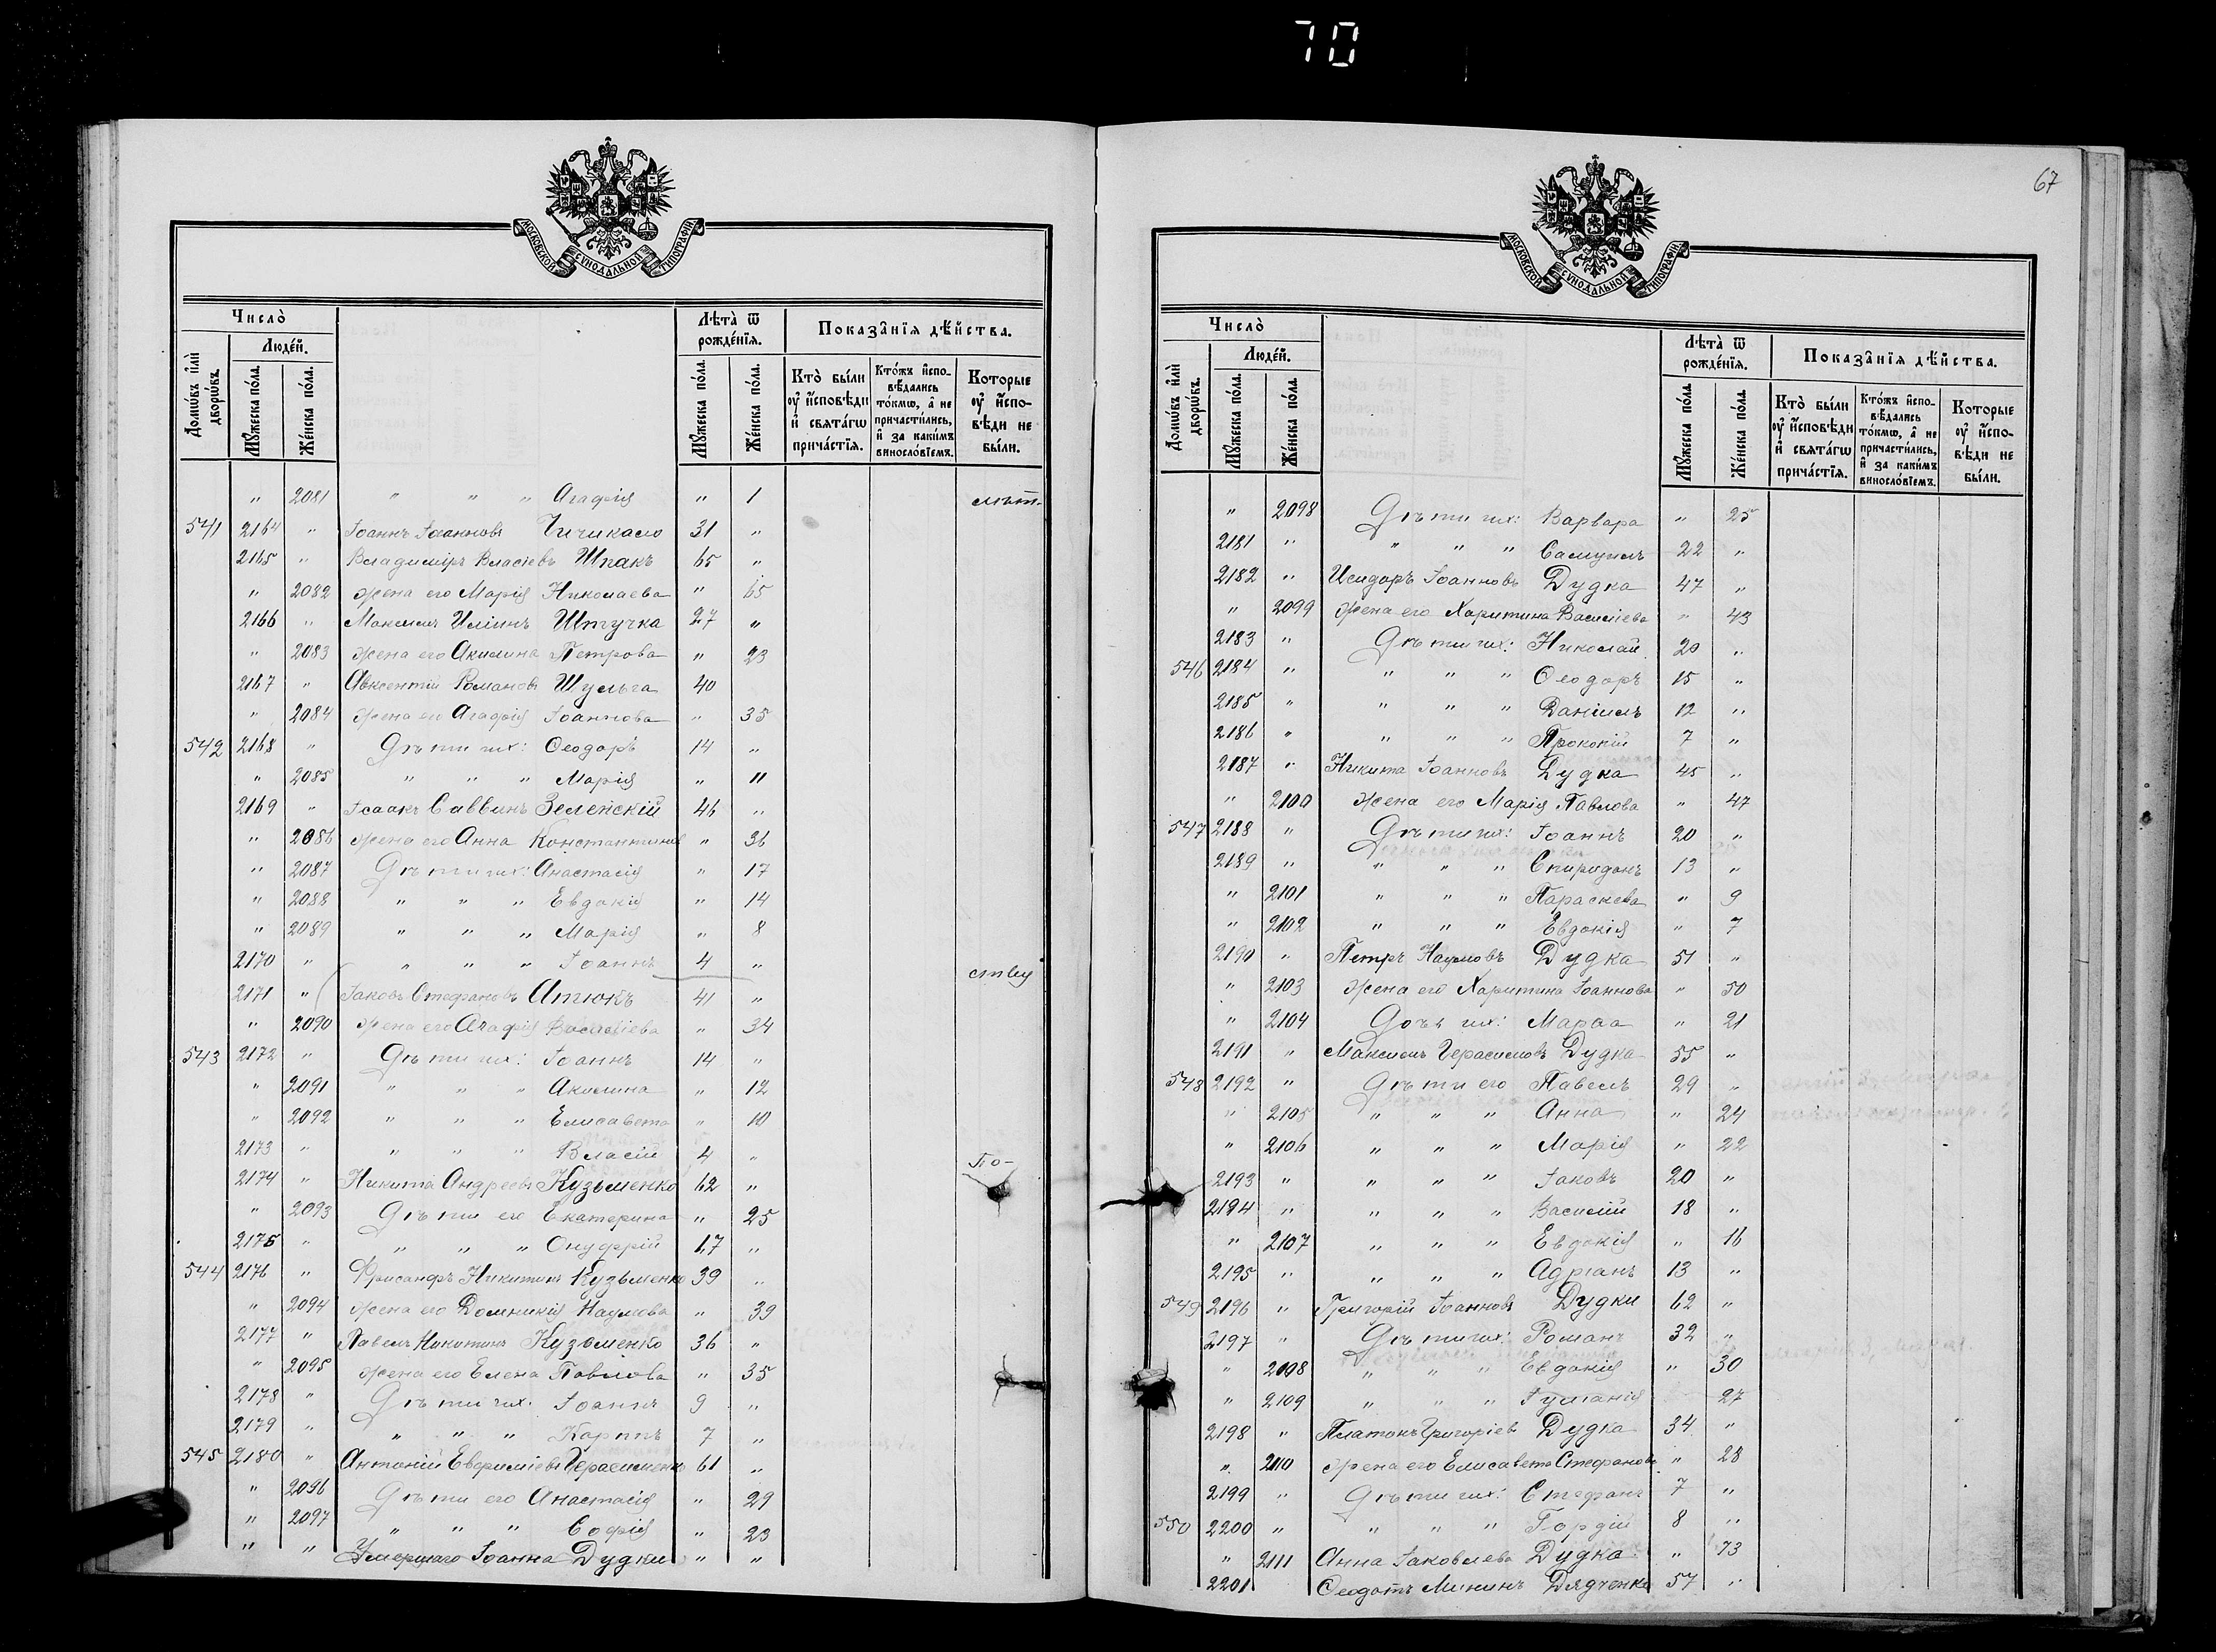 70
МОСКОВСКОЙ СѴНОДАЛЬНОЙ ТИПОГРАФІИ.
Число̀
Людéй.
Домѡ́въ и҆лѝ дворѡ́въ.
Мꙋ́жеска по́ла.
Же́нска по́ла.
Лѣта̀ ѿ рожде́нїѧ.
Мꙋ́жеска по́ла.
Же́нска по́ла.
Показа̑нїѧ дѣ́йства.
Кто̀ бы́ли оу҆ и҆́сповѣди и҆ свѧта́гѡ прича́стїѧ.
Кто́жъ и҆спо-вѣ́дались то́кмѡ, а҆ не причасти́лись, и҆ за каки́мъ винослові́емъ.
Которые оу҆ и҆́спо-вѣди не бы́ли.
" 2081 " " " Агафія " 1
541 2164 " Іоаннъ Іоанновъ Чичикало 31 "
2165 " Владиміръ Власіевъ Шпакъ 65 "
" 2082 жена его Марія Николаева " 65
2166 " Максимъ Иліинъ Штучка 27 "
" 2083 жена его Акилина Петрова " 23
2167 " Авксентій Романовъ Шульга 40
" 2084 жена его Агафія Іоаннова " 35
542 2168 " Дѣти ихъ: Ѳеодоръ 14 "
" 2085 " " " Марія " 11
2169 " Ісаакъ Саввинъ Зеленскій 46 "
" 2086 жена его Анна Константинова " 36
" 2087 Дѣти ихъ: Анастасія " 17
" 2088 " " " Евдокія " 14
" 2089 " " " Марія " 8
2170 " " " " Іоаннъ 4 "
2171 " Іаковъ Стефановъ Атюкъ 41 "
" 2090 жена его Агафія Василіева " 34
543 2172 " Дѣти ихъ: Іоаннъ 14 "
" 2091 " " " Акилина " 12
" 2092 " " " Елисавета " 10
2173 " " " " Власій 4 " По-
2174 " Никита Андреевъ Кузьменко 62 "
" 2093 Дѣти его Екатерина " 25
2175 " " " " Онуфрій 17 "
544 2176 " Хрисанфъ Никитинъ Кузьменко 39 "
" 2094 жена его Домникія Наумова " 39
2177 " Павелъ Никитинъ Кузьменко 36 "
" 2095 жена его Елена Павлова " 35
2178 " Дѣти ихъ: Іоаннъ 9 "
2179 " " " " Карппъ 7 "
545 2180 " Антоній Евфиміевъ Герасименко 61 "
" 2096 Дѣти его Анастасія " 29
" 2097 " " " Софія " 23
" " Умершаго Іоанна Дудки " "
67
МОСКОВСКОЙ СѴНОДАЛЬНОЙ ТИПОГРАФІИ.
Число̀
Людéй.
Домѡ́въ и҆лѝ дворѡ́въ.
Мꙋ́жеска по́ла.
Же́нска по́ла.
Лѣта̀ ѿ рожде́нїѧ.
Мꙋ́жеска по́ла.
Же́нска по́ла.
Показа̑нїѧ дѣ́йства.
Кто̀ бы́ли оу҆ и҆́сповѣди и҆ свѧта́гѡ прича́стїѧ.
Кто́жъ и҆спо-вѣ́дались то́кмѡ, а҆ не причасти́лись, и҆ за каки́мъ винослові́емъ.
Которые оу҆ и҆́спо-вѣди не бы́ли.
" 2098 Дѣти ихъ: Варвара " 25
2181 " " " " Самуилъ 22 "
2182 " Исидоръ Іоанновъ Дудка 47 "
" 2099 жена его Харитина Василіева " 43
2183 " Дѣти ихъ: Николай 20 "
546 2184 " " " " Ѳеодоръ 15 "
2185 " " " " Даніилъ 12 "
2186 " " " " Прокопій 7 "
2187 " Никита Іоанновъ Дудка 45 "
" 2100 жена его Марія Павлова " 47
547 2188 " Дѣти ихъ: Іоаннъ 20 "
2189 " " " " Спиридонъ 13 "
" 2101 " " " Параскева " 9
" 2102 " " " Евдокія " 7
2190 " Петръ Наумовъ Дудка 51 "
" 2103 жена его Харитина Іоаннова " 50
" 2104 Дочь ихъ: Марѳа " 21
2191 " Максимъ Герасимовъ Дудка 55 "
548 2192 " Дѣти его Павелъ 29 "
" 2105 " " " Анна " 24
" 2106 " " " Марія " 22
2193 " " " " Іаковъ 20 "
2194 " " " " Василій 18 "
" 2107 " " " Евдокія " 16
2195 " " " " Адріанъ 13 "
549 2196 " Григорій Іоанновъ Дудки 62 "
2197 " Дѣти ихъ: Романъ 32 "
" 2098 " " " Евдокія " 30
" 2109 " " " Іуліанія 27
2198 " Платонъ Григоріев Дудка 34 "
" 2110 жена его Елисавета Стефанова " 28
2199 " Дѣти ихъ: Стефанъ 7 "
550 2200 " " " " Гордій 8 "
" 2111 Анна Іаковлева Дудка " 73
2201 Ѳеодотъ Мининъ Дядченко 57 "